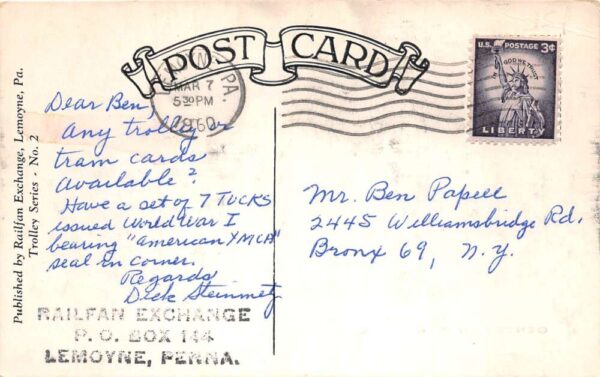 POST CARD
PA.
MAR 7
5 30 PM
1960
U.S. POSTAGE 3¢
IN GOD WE TRUST
LIBERTY
Published by Railfan Exchange, Lemoyne, Pa.
Trolley Series - No. 2
Dear Ben,
Any trolley or
tram cards
available?
Have a set of 7 TUCKS
issued World War I
bearing "American YMCA"
seal in corner.
Regards
Dick Steinmetz
RAILFAN EXCHANGE
P. O. BOX 144
LEMOYNE, PENNA.
Mr. Ben Papell
2445 Williamsbridge Rd.
Bronx 69, N.Y.